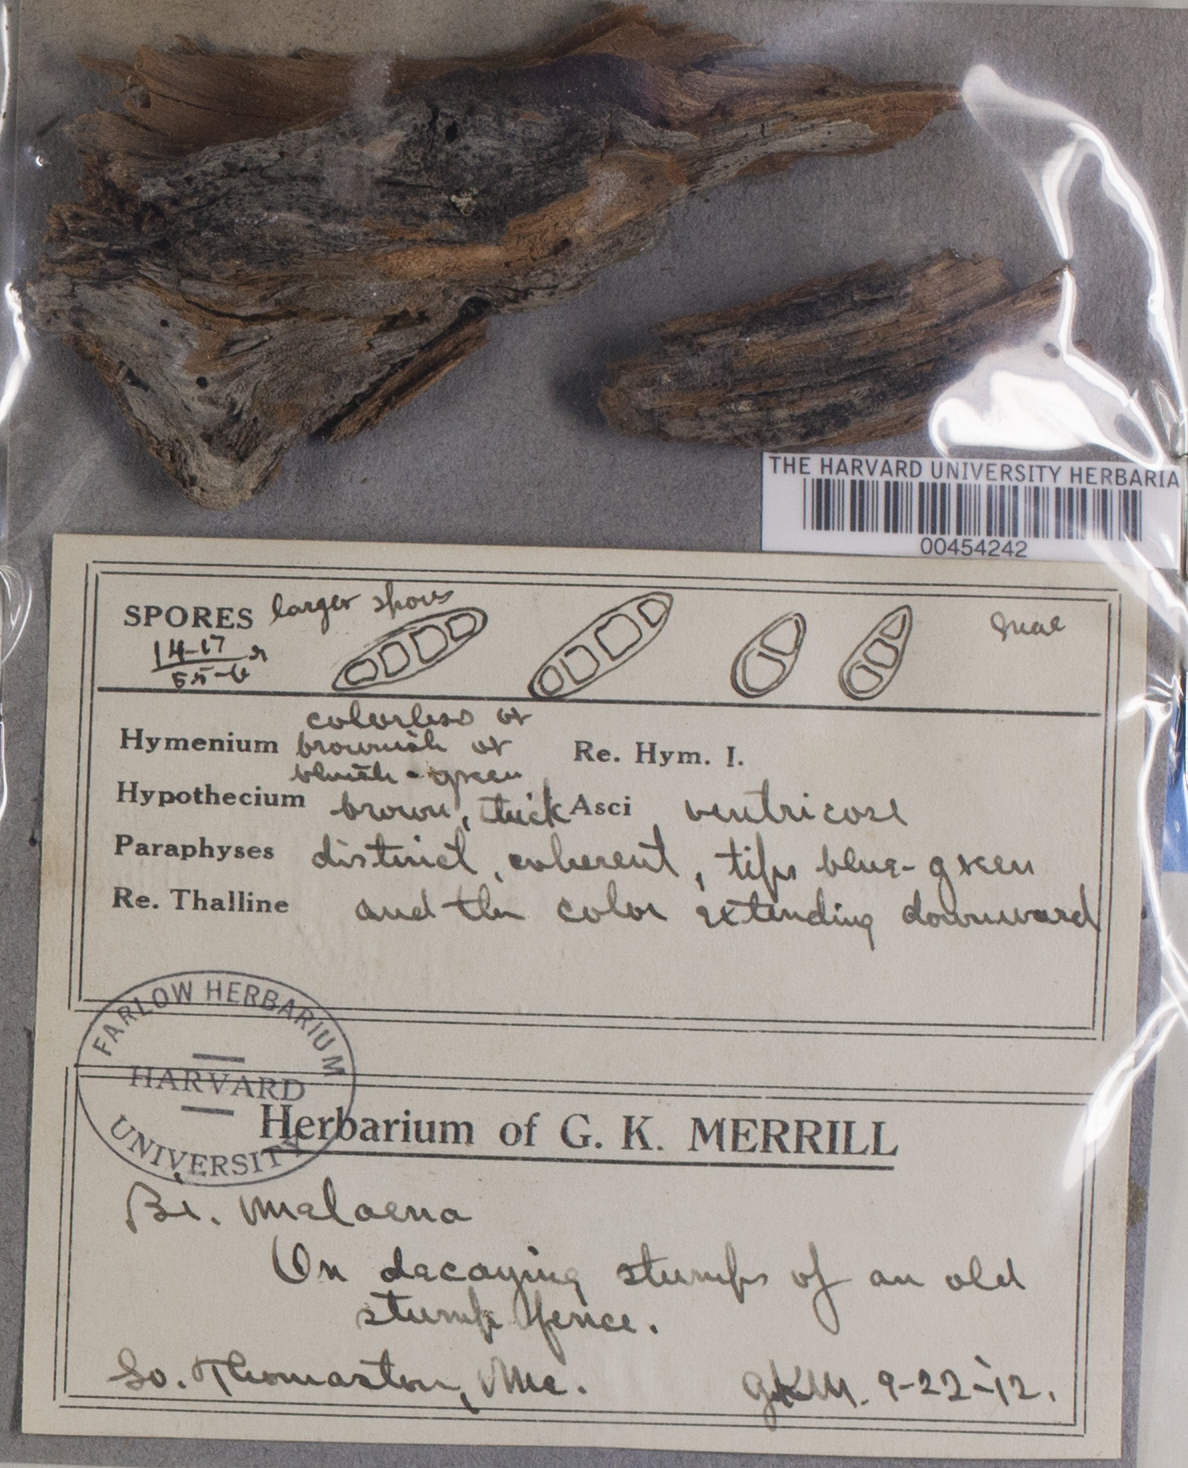 THE HARVARD UNIVERSITY HERBARIA
00454242
SPORES larger spores
14-17
5.5-6
Hymenium colorless or
brownish or
bluish-green
Re. Hym. I.
Hypothecium brown, thick Asci ventricose
Paraphyses distinct, coherent, tips blue-green
Re. Thalline and the color extending downward
FARLOW HERBARIUM
HARVARD
UNIVERSITY
Herbarium of G. K. MERRILL
Bi. melaena
On decaying stumps of an old
stump fence.
So. Thomaston, Me. GKM. 9-22-12.